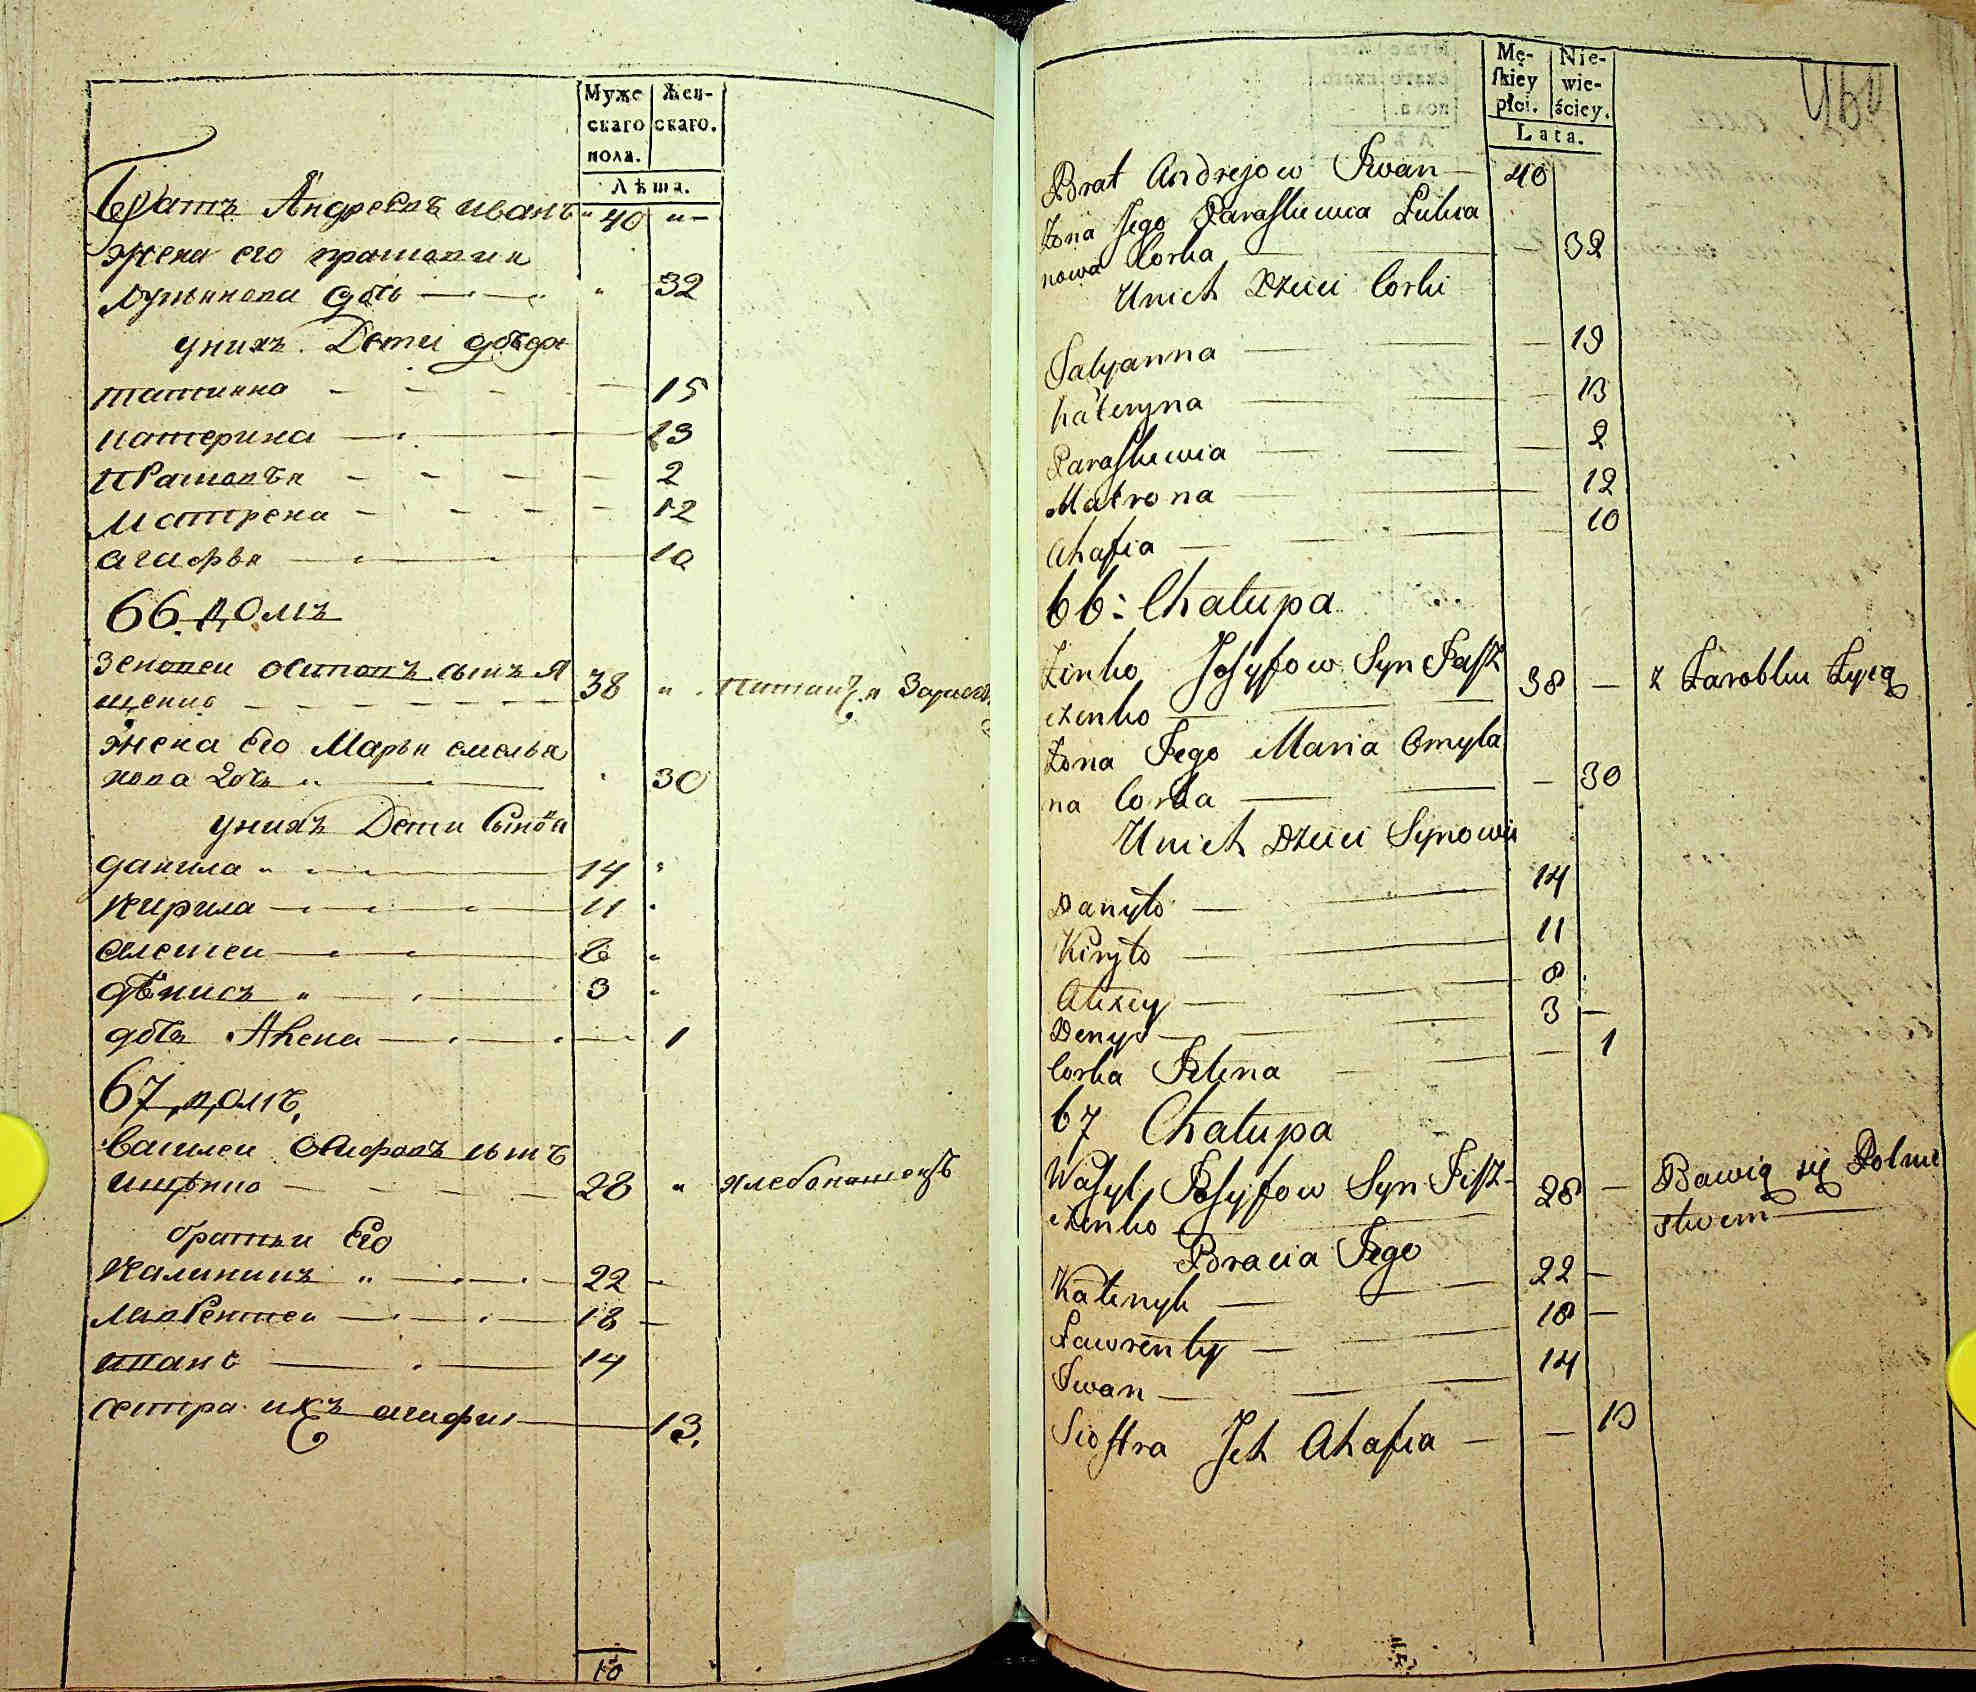 Муже
скаго
пола.
Жен-
скаго.
Лѣта.
Братъ Андреевъ иванъ 40
жена его прасковия
Лукьянова дочь 32
у нихъ Дети дочери
татиана 15
катерина 13
Прасковья 2
Матрена 12
агафья 10
66. домъ
Зеновей Осиповъ сынъ Я
щенко 38
жена Его Марья емелья
нова дочь 30
у нихъ Дети Сыновя
данила 14
Кирила 11
алексеи 8
дѣнисъ 3
дочь Алена 1
67, домъ,
Василеи Осиповъ сынъ
28 хлебопашецъ
братьи Его
Калиникъ 22
Лаврентеи 18
иванъ 14
сестра ихъ агафия 13.
10
Mę-
ſkiey
płci.
Nie-
wie-
ściey.
Lata.
Brat Andrejow Iwan 40
Żona Jego Paraskiewia Lukia
nowa Corka 32
Unich Dzieci Corki
Tatyanna 19
Kateryna 13
Paraskiewia 2
Matrona 12
Ahafia 10
66: Chalupa
Zinko Josyfow Syn Jasz
czenko 38 z Zarobku Żyią
Żona Jego Maria Omyla
na Corka 30
Unich Dzieci Synowie
Danyło 14
Kiryło 11
Alexey 8
Denys 3
Corka Jelena 1
67 Chalupa
Wasyl Josyfow Syn Jisz-
czenko 28 Bawią się Rolni
stwem
Bracia Jego
Kalenyk 22
Lawrenty 18
Iwan 14
Siostra Jch Ahafia 13